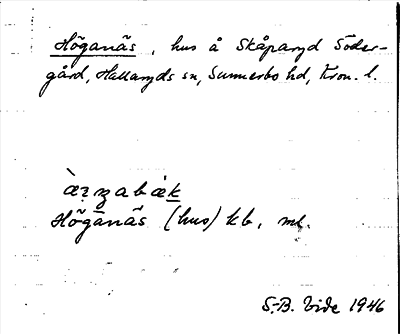 Höganäs, hus å Skåparyd Söder-
gård, Hallaryds sn, Sunnerbo hd, Kron. l.
Höganäs (hus) kb, ml.
S.-B. Vide 1946